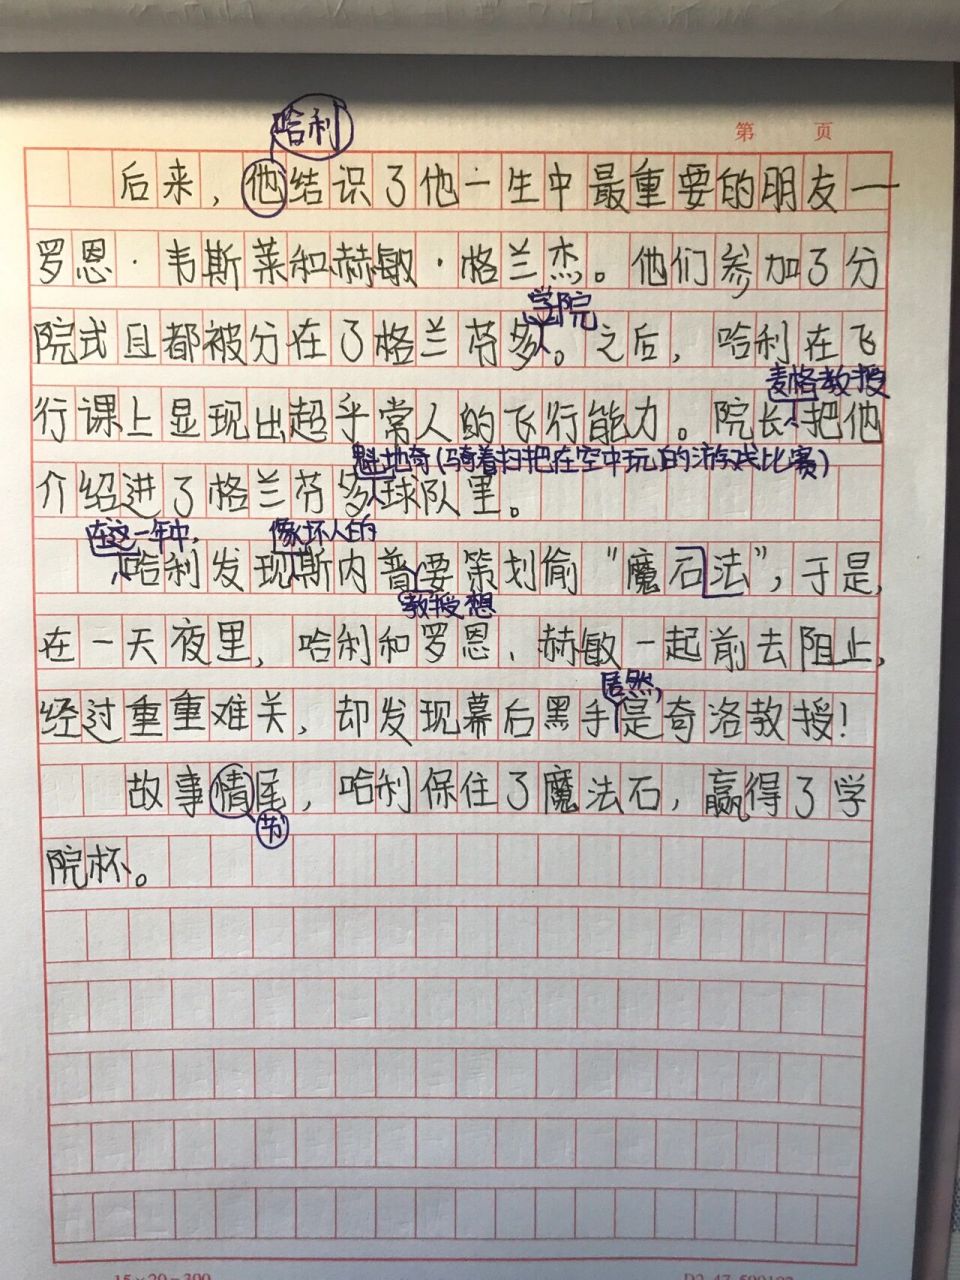 哈利
第 页
后来，他结识了他一生中最重要的朋友一
罗恩·韦斯莱和赫敏·格兰杰。他们参加了分
学院
院式且都被分在了格兰芬多。之后，哈利在飞
麦格教授
行课上显现出超乎常人的飞行能力。院长把他
魁地奇(骑着扫把在空中玩的游戏比赛)
介绍进了格兰芬多球队里。
在这一年中， 像坏人的
哈利发现斯内普要策划偷“魔石法”，于是，
教授想
在一天夜里，哈利和罗恩、赫敏一起前去阻止，
居然，
经过重重难关，却发现幕后黑手是奇洛教授！
故事情尾，哈利保住了魔法石，赢得了学
节
院杯。
15×20=300